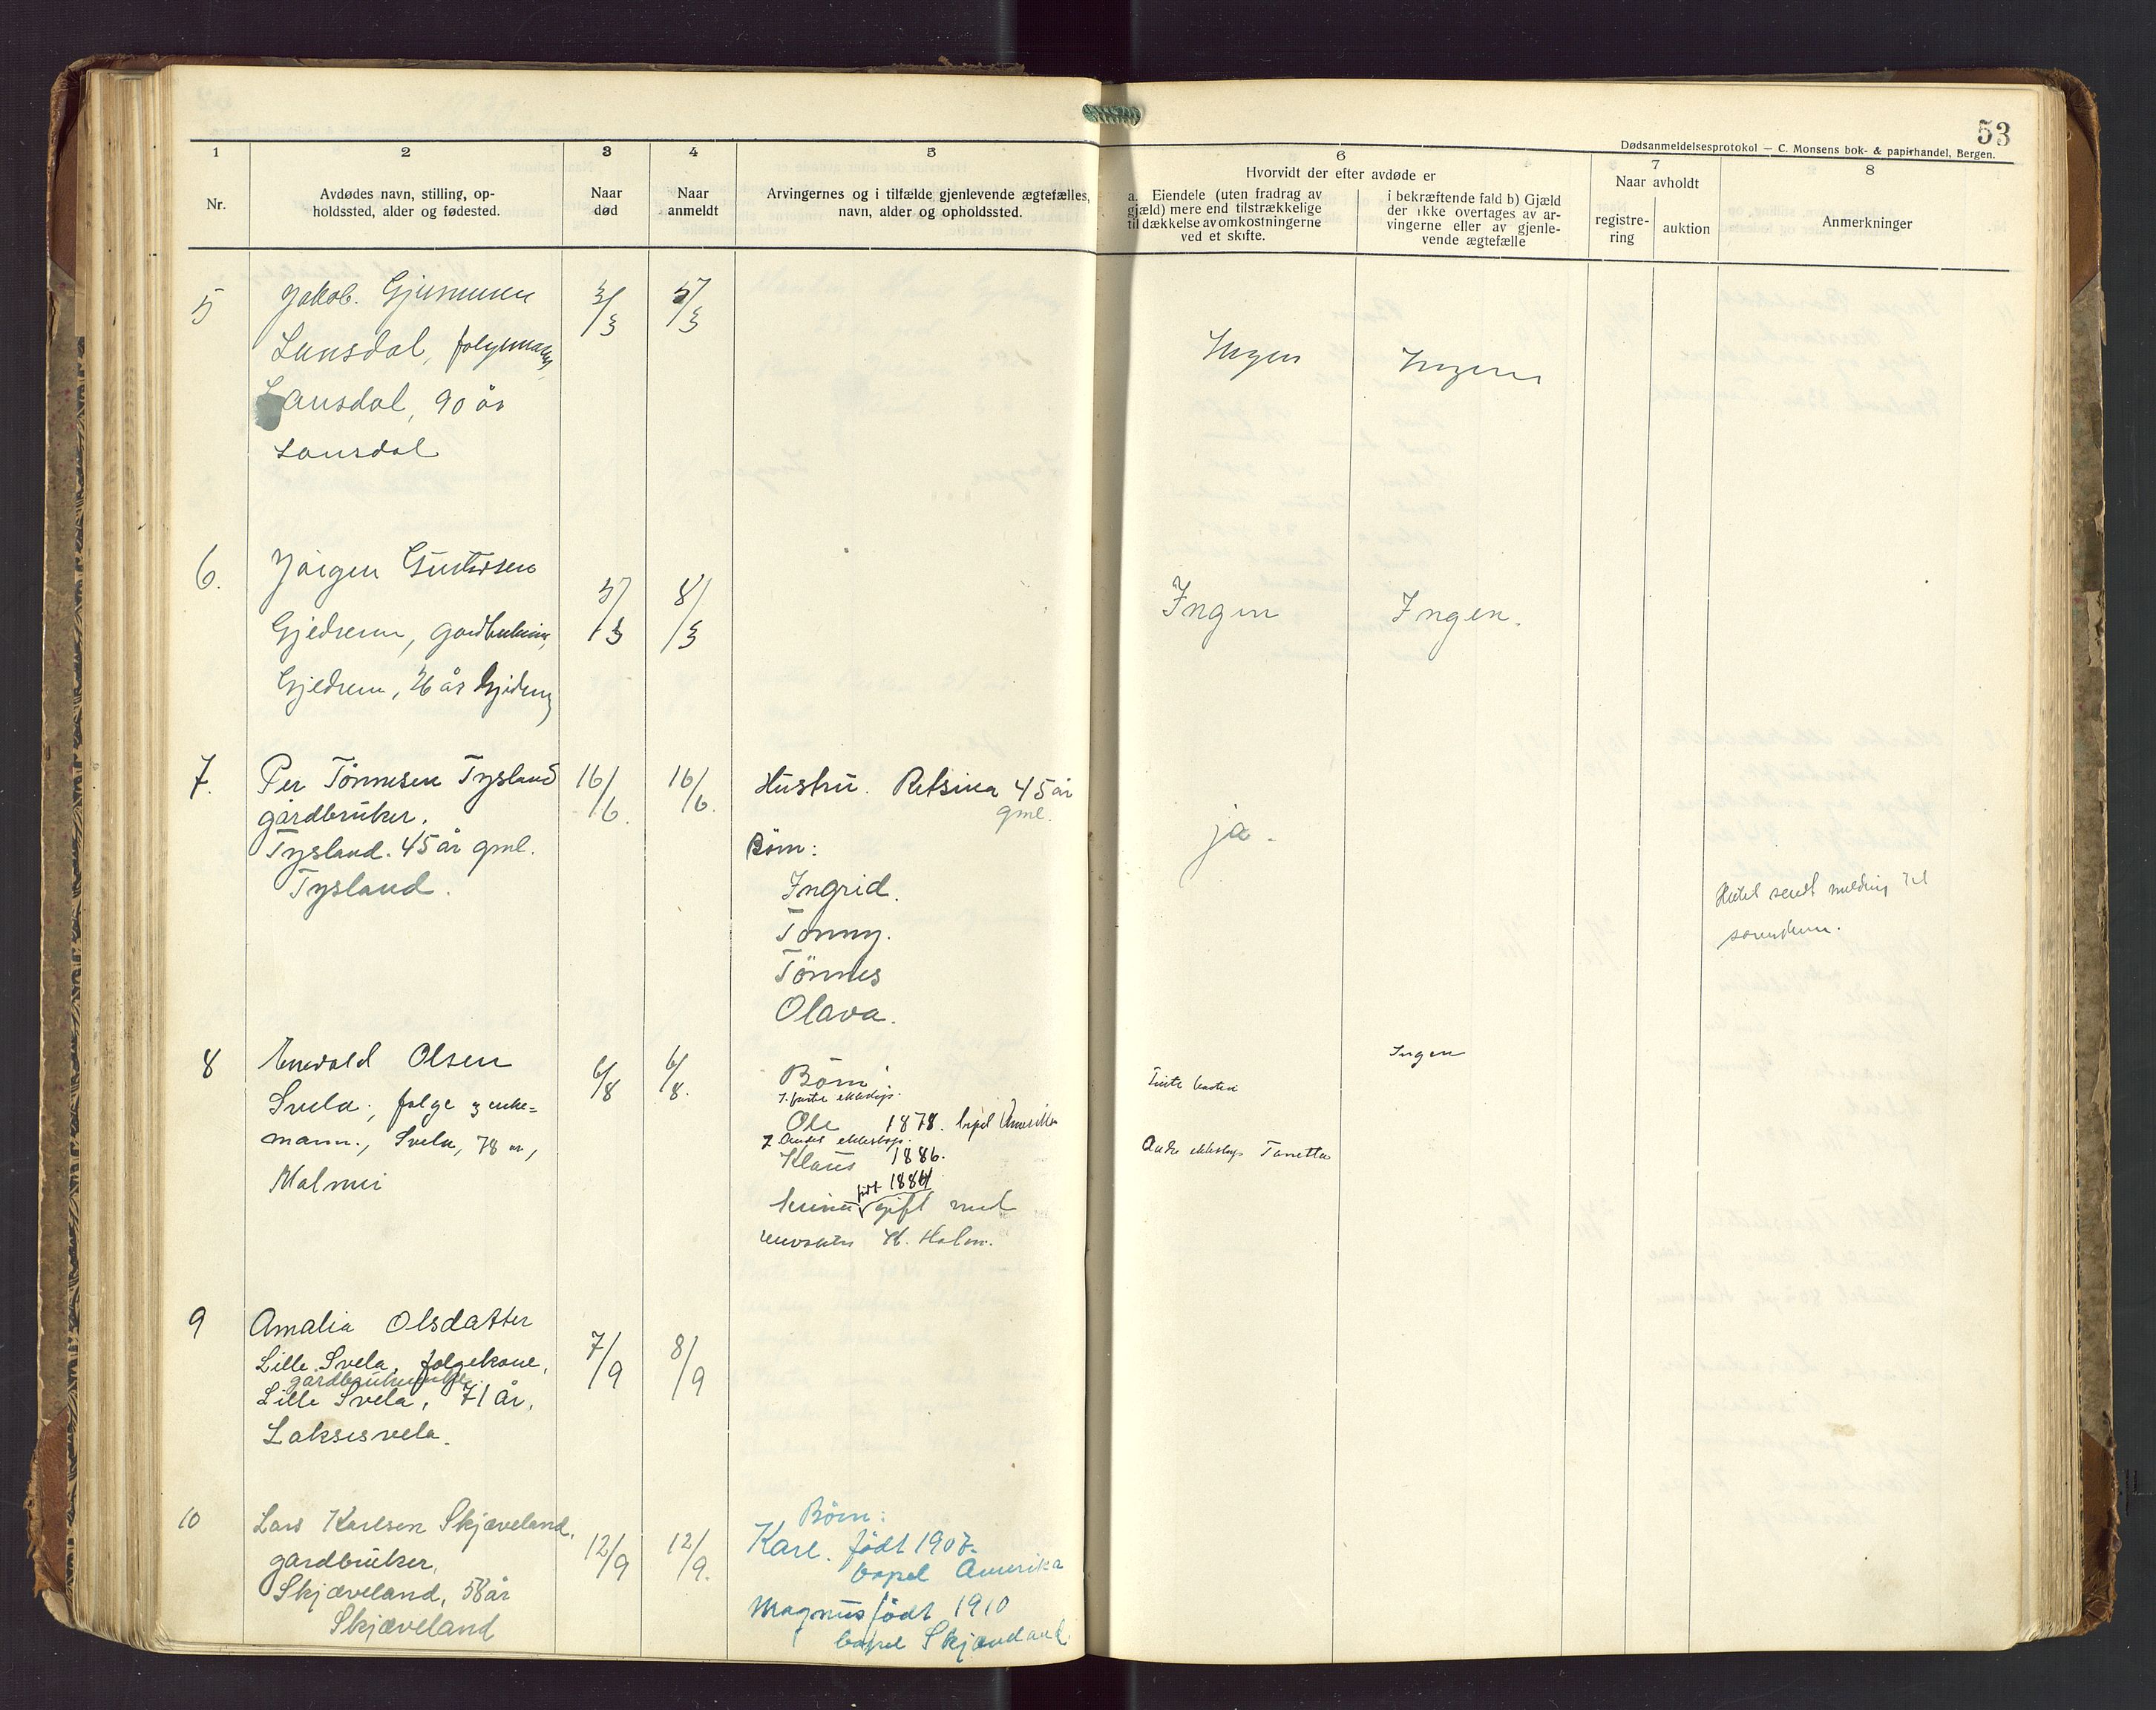 53
Dødsanmeldelsesprotokol — C. Monsens bok- & papirhandel, Bergen.
1 2 3 4 5 6 7 8
Nr.
Avdødes navn, stilling, op-
holdssted, alder og fødested.
Naar
død
Naar
anmeldt
Arvingernes og i tilfælde gjenlevende ægtefælles,
navn, alder og opholdssted.
Hvorvidt der efter avdøde er
a. Eiendele (uten fradrag av
gjæld) mere end tilstrækkelige
til dækkelse av omkostningerne
ved et skifte.
i bekræftende fald b) Gjæld
der ikke overtages av ar-
vingerne eller av gjenle-
vende ægtefælle
Naar avholdt
registre-
ring
auktion
Anmerkninger
5 Jakob 3/3 5/3
Lansdal,
Lansdal, 90 år
Lansdal
Ingen Ingen
6. Jørgen
Gjedrem, 5/3 8/3
Gjedrem, år Gjedrem
Ingen Ingen.
7. Per Tönnesen Tysland 16/6. 16/6.
gårdbruker.
Tysland. 45 år gml.
Tysland.
Hustru. 45 år
gml.
Børn:
Ingrid.
Tonny.
Tönnes
Olava.
ja.
sendt melding til
8 Olsen 6/8 6/8.
Svela, følge g enke=
mann., Svela, 78 år,
Malmei
Børn:
ekteskap.
Ole 1878. bopel Amerika
2 Andet ekteskap.
Klaus 1886.
født 1884
gift med
H. Holm.
Ingen
ekteskap
9 Amalia Olsdatter 7/9 8/9
Lille Svela, følgekone,
Lille Svela, 71 år,
Laksesvela.
10 Lars Karlsen Skjæveland, 12/9 12/9.
gardbruker,
Skjæveland, 58 år
Skjæveland
Børn:
Karl. født 1907.
bopel Amerika
Magnus født 1910
bopel Skjæveland.